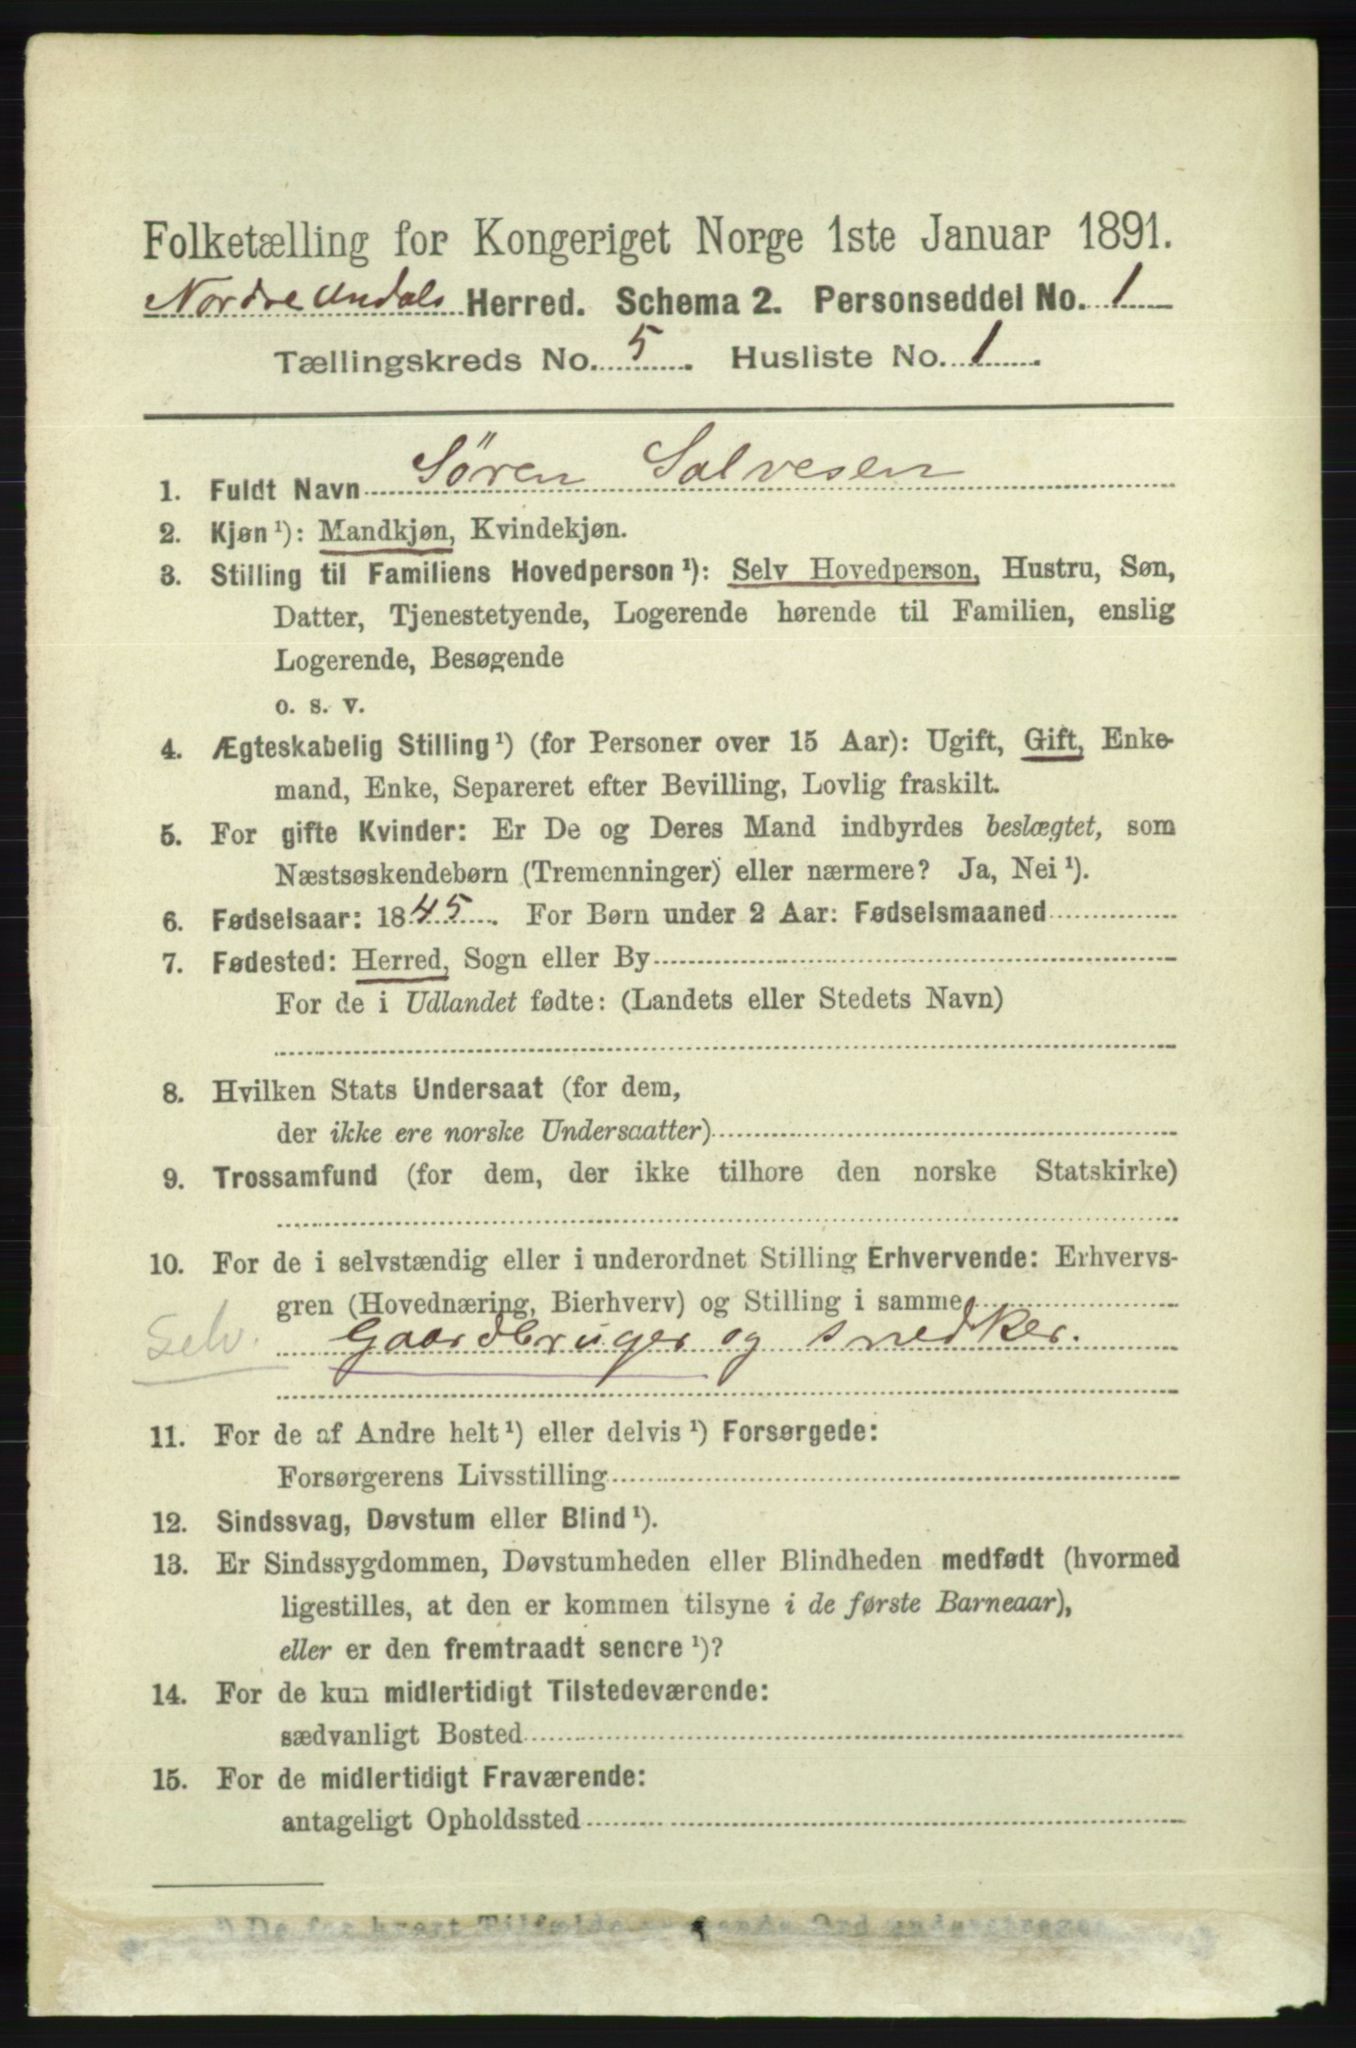 Folketælling for Kongeriget Norge 1ste Januar 1891.
Nordre Undals Herred. Schema 2. Personseddel No. 1
Tællingskreds No. 5. Husliste No. 1.
1. Fuldt Navn Søren Salvesen
2. Kjøn ¹): Mandkjøn, Kvindekjøn.
3. Stilling til Familiens Hovedperson ¹): Selv Hovedperson, Hustru, Søn,
Datter, Tjenestetyende, Logerende hørende til Familien, enslig
Logerende, Besøgende
o. s. v.
4. Ægteskabelig Stilling ¹) (for Personer over 15 Aar): Ugift, Gift, Enke-
mand, Enke, Separeret efter Bevilling, Lovlig fraskilt.
5. For gifte Kvinder: Er De og Deres Mand indbyrdes beslægtet, som
Næstsøskendebørn (Tremenninger) eller nærmere? Ja, Nei ¹).
6. Fødselsaar: 1845. For Børn under 2 Aar: Fødselsmaaned
7. Fødested: Herred, Sogn eller By
For de i Udlandet fødte: (Landets eller Stedets Navn)
8. Hvilken Stats Undersaat (for dem,
der ikke ere norske Undersaatter)
9. Trossamfund (for dem, der ikke tilhøre den norske Statskirke)
10. For de i selvstændig eller i underordnet Stilling Erhvervende: Erhvervs-
gren (Hovednæring, Bierhverv) og Stilling i samme
Selv. Gaardbruger og snedker.
11. For de af Andre helt ¹) eller delvis ¹) Forsørgede:
Forsørgerens Livsstilling
12. Sindssvag, Døvstum eller Blind ¹).
13. Er Sindssygdommen, Døvstumheden eller Blindheden medfødt (hvormed
ligestilles, at den er kommen tilsyne i de første Barneaar),
eller er den fremtraadt senere ¹)?
14. For de kun midlertidigt Tilstedeværende:
sædvanligt Bosted
15. For de midlertidigt Fraværende:
antageligt Opholdssted
¹) De for hvert Tilfælde Ord